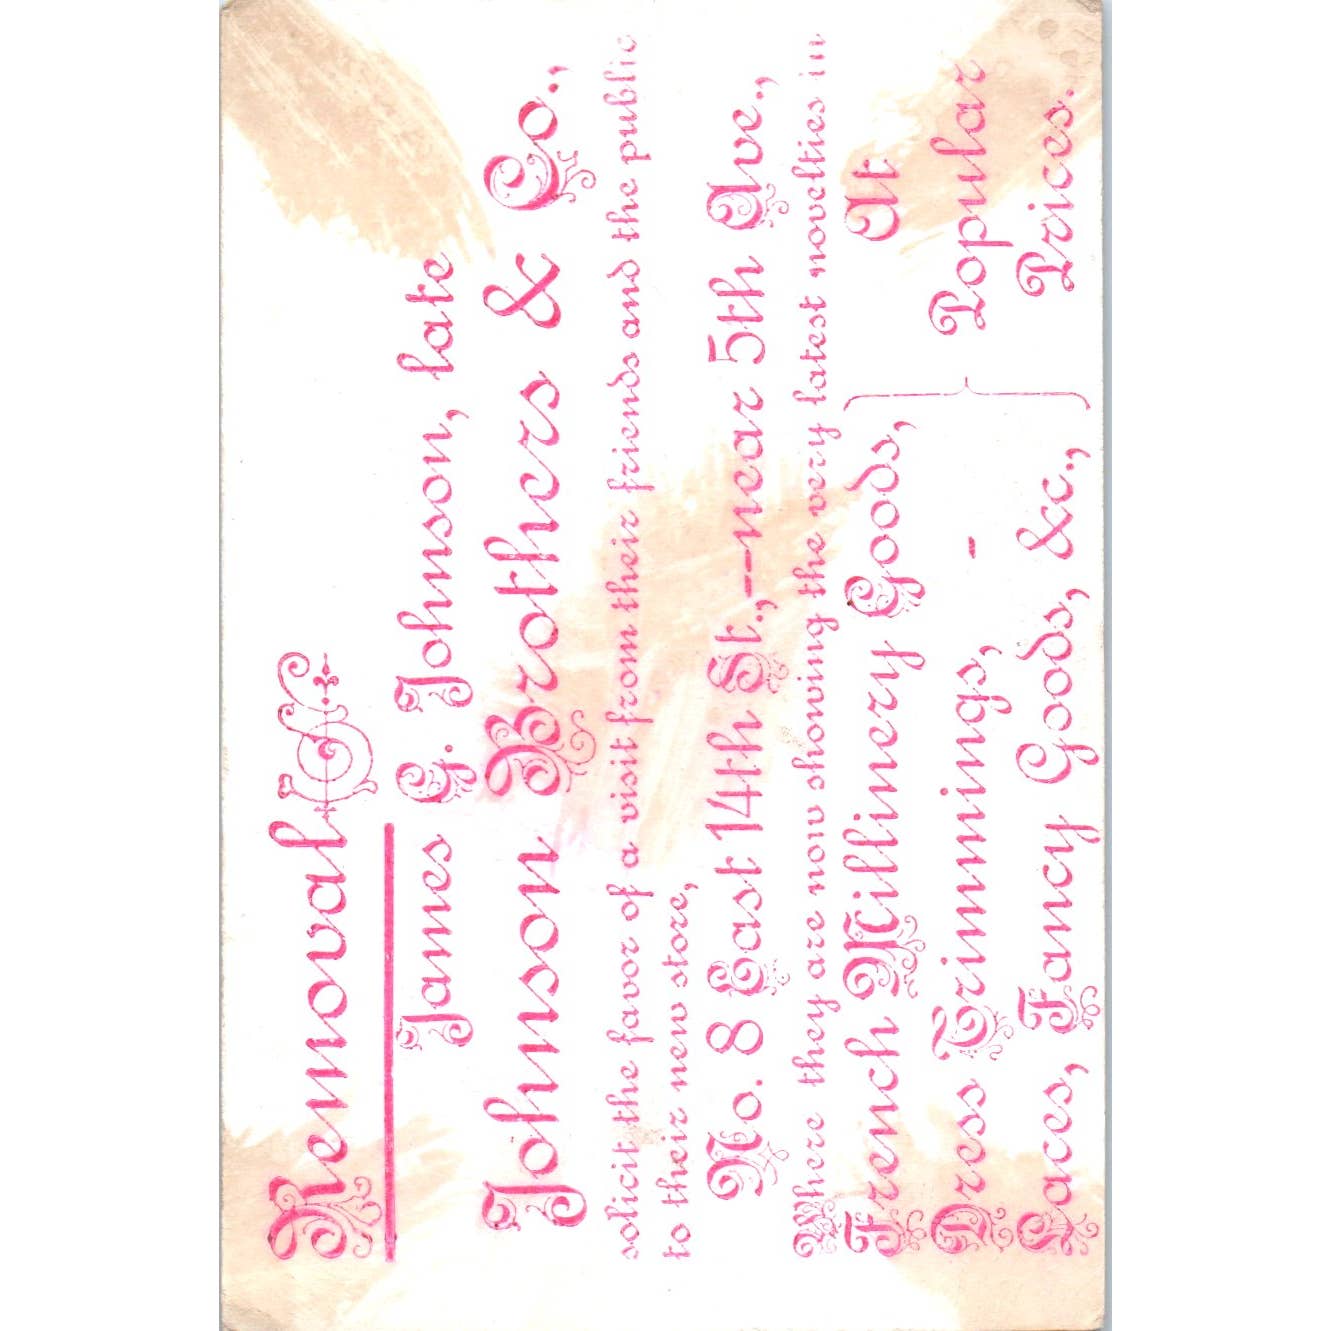 Removal
James G. Johnson, late
Johnson Brothers & Co.,
solicit the favor of a visit from their friends and the public
to their new store,
No. 8 East 14th St.,--near 5th Ave.,
Where they are now showing the very latest novelties in
French Millinery Goods,
Dress Trimmings, -
Laces, Fancy Goods, &c.,
At
Popular
Prices.